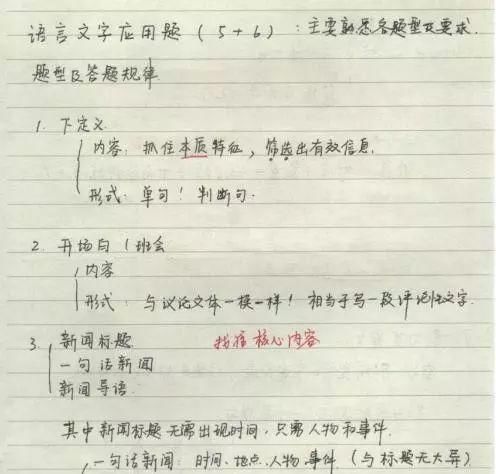 语言文字应用题（5+6）：主要熟悉各题型及要求.
题型及答题规律
1. 下定义.
内容：抓住本质特征，筛选出有效信息.
形式：单句！判断句.
2. 开场白（班会
内容
形式：与议论文体一模一样！相当于写一段评论性文字.
3. 新闻标题. 找准核心内容
一句话新闻
新闻导语.
其中新闻标题无需出现时间，只需人物和事件.
一句话新闻：时间、地点、人物、事件（与标题无大异）